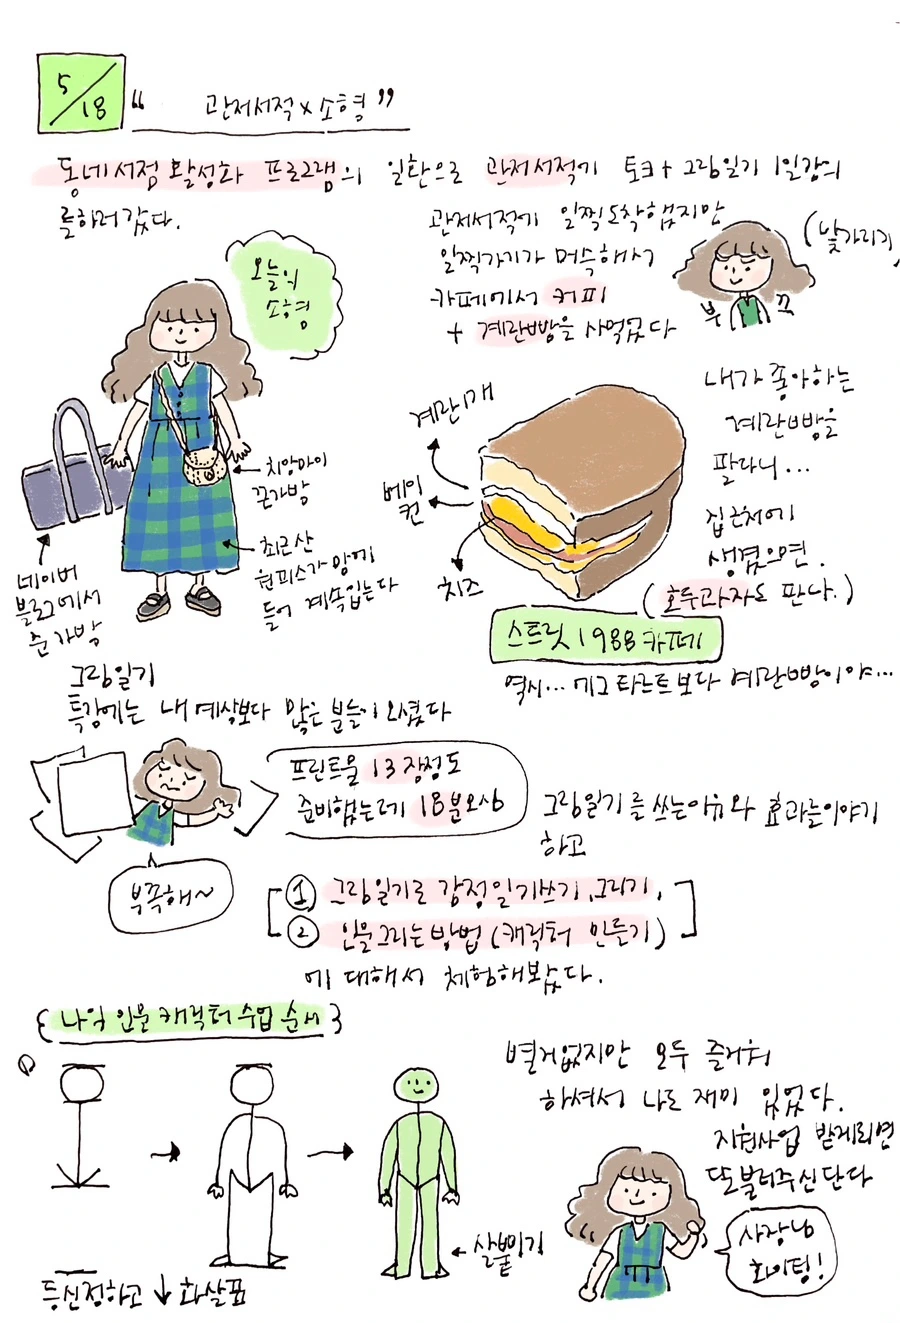 5/18 “ 관저서적 x 소형 ”
동네서점 활성화 프로그램의 일환으로 관저서적에 토크 + 그림일기 1일강의
를하러 갔다.
관저서적에 일찍도착했지만
일찍가기가 머쓱해서
카페에서 커피
+ 계란빵을 사먹었다
(낯가리기,
부 끄
오늘의
소형
치앙마이
끈가방
최근산
원피스가 맘에
들어 계속입는다
네이버
블로그에서
준 가방
계란1개
베이
컨
치즈
내가 좋아하는
계란빵을
팔다니...
집근처에
생겼으면.
(호두과자도 판다.)
스트릿 1988 카페
역시... 에그타르트보다 계란빵이야...
그림일기
특강에는 내 예상보다 많은 분들이 오셨다
프린트물 13장정도
준비했는데 18분오심
부족해~
그림일기를 쓰는이유와 효과를이야기
하고
① 그림일기로 감정일기쓰기, 그리기,
② 인물그리는방법 (캐릭터 만들기)
에 대해서 체험해봤다.
{ 나의 인물 캐릭터 수업 순서 }
등신정하고 ↓ 화살표
← 살붙이기
별거없지만 모두 즐거워
하셔서 나도 재미 있었다.
지원사업 받게되면
또불러주신단다
사장님
화이팅!